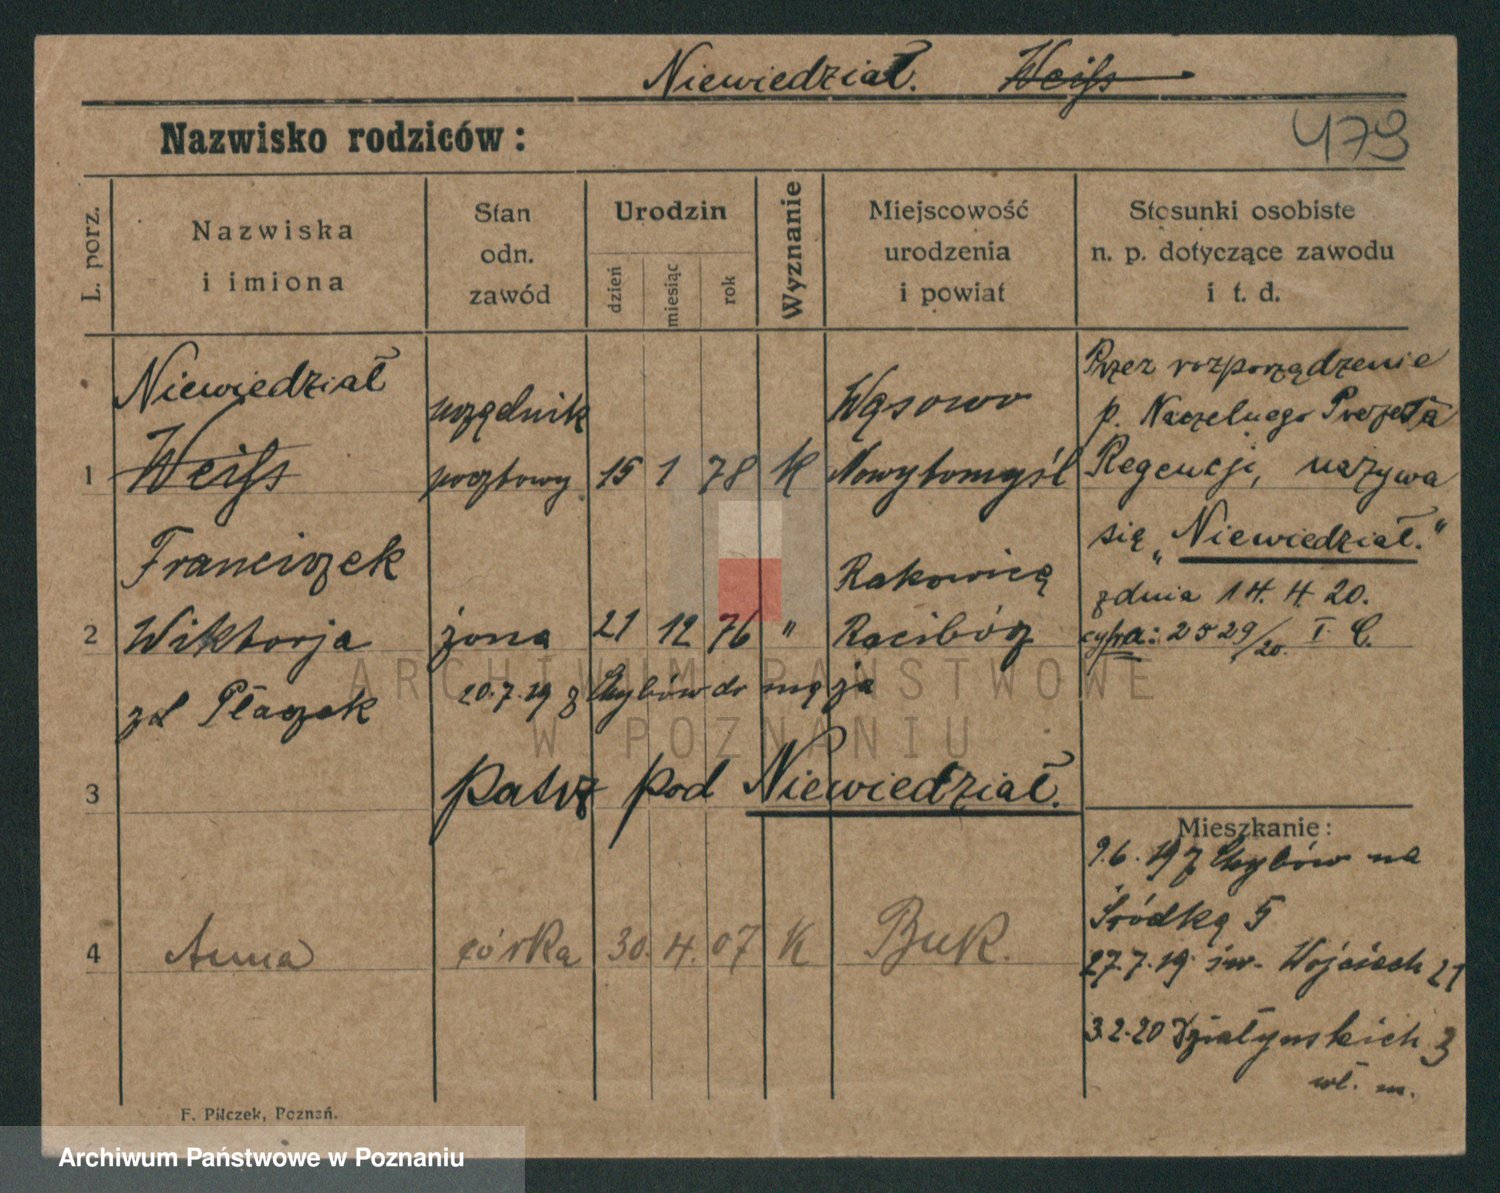 Niewiedział. Weiss
Nazwisko rodziców:
479
L. porz.
Nazwiska
i imiona
Stan
odn.
zawód
Urodzin
dzień
miesiąc
rok
Wyznanie
Miejscowość
urodzenia
i powiat
Stosunki osobiste
n. p. dotyczące zawodu
i t. d.
1
Niewiedział
Weiss
Franciszek
urzędnik
pocztowy
15 1 78 K
Wąsowo
Nowytomyśl
Przez rozporządzenie
p. Naczelnego Prezesa
Regencji, nazywa
się „Niewiedział."
z dnia 14. 4. 20.
cyfra: 2529/20. I. C.
2
Wiktorja
zd Płaczek
żona
21 12 76 "
Rakowicą
Racibórz
20.7.19 z do męża
3
patrz pod Niewiedział.
4
Anna córka 30. 4. 07 K Buk.
Mieszkanie:
9.6.19 z na
Śródką 5
27.7.19. św. Wojciech 21
3.2.20 Działyńskich 3
wł. m.
F. Pilczek, Poznań.
ARCHIWUM PAŃSTWOWE
W POZNANIU
Archiwum Państwowe w Poznaniu